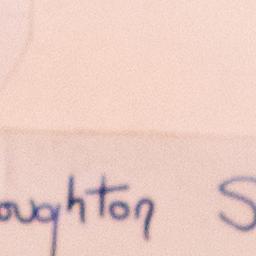 oughton S